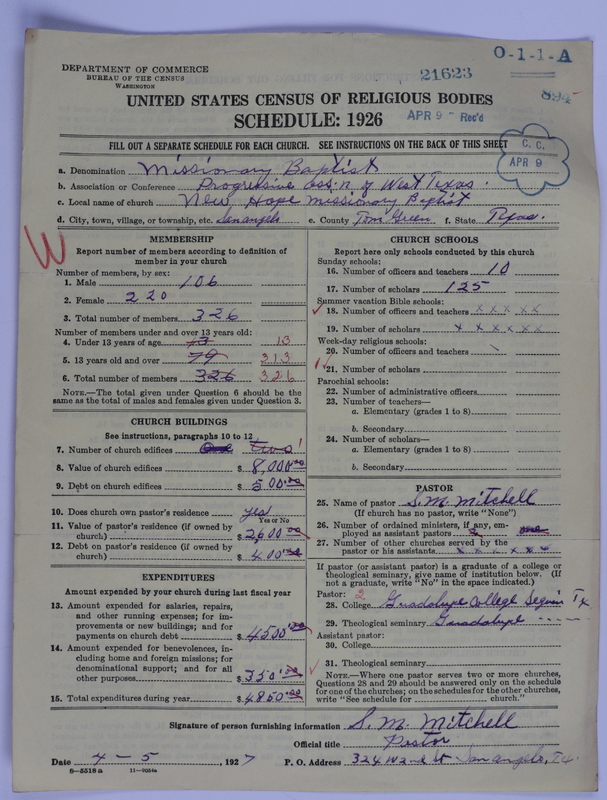 DEPARTMENT OF COMMERCE
BUREAU OF THE CENSUS
WASHINGTON
O-1-1-A
21623
894
UNITED STATES CENSUS OF RELIGIOUS BODIES
SCHEDULE: 1926
APR 9 - Rec'd
FILL OUT A SEPARATE SCHEDULE FOR EACH CHURCH. SEE INSTRUCTIONS ON THE BACK OF THIS SHEET
C. C.
APR 9
a. Denomination Missionary Baptist
b. Association or Conference Progressive assn of West Texas.
c. Local name of church New Hope Missionary Baptist
d. City, town, village, or township, etc. San angelo e. County Tom Green f. State Texas.
W
MEMBERSHIP
Report number of members according to definition of
member in your church
Number of members, by sex:
1. Male 106
2. Female 220
3. Total number of members 326
Number of members under and over 13 years old:
4. Under 13 years of age 13 13
5. 13 years old and over 79 313
6. Total number of members 326 326
NOTE.—The total given under Question 6 should be
same as the total of males and females given under Question 3.
CHURCH BUILDINGS
See instructions, paragraphs 10 to 12
7. Number of church edifices One two 1
8. Value of church edifices $ 8,000.00
9. Debt on church edifices $ 500.00
10. Does church own pastor's residence yes
Yes or No
11. Value of pastor's residence (if owned by
church) $ 2600.00
12. Debt on pastor's residence (if owned by
church) $ 400.00
EXPENDITURES
Amount expended by your church during last fiscal year
13. Amount expended for salaries, repairs,
and other running expenses; for im-
provements or new buildings; and for
payments on church debt $ 4500.00
14. Amount expended for benevolences, in-
cluding home and foreign missions; for
denominational support; and for all
other purposes $ 350.00
15. Total expenditures during year $ 4850.00
CHURCH SCHOOLS
Report here only schools conducted by this church
Sunday schools:
16. Number of officers and teachers 10
17. Number of scholars 125
Summer vacation Bible schools:
18. Number of officers and teachers x x x x x
19. Number of scholars x x x x x x
Week-day religious schools:
20. Number of officers and teachers
21. Number of scholars
Parochial schools:
22. Number of administrative officers
23. Number of teachers—
a. Elementary (grades 1 to 8)
b. Secondary
24. Number of scholars—
a. Elementary (grades 1 to 8)
b. Secondary
PASTOR
25. Name of pastor S. M. Mitchell
(If church has no pastor, write "None")
26. Number of ordained ministers, if any, em-
ployed as assistant pastors
27. Number of other churches served by the
pastor or his assistants x x x x x x
If pastor (or assistant pastor) is a graduate of a college or
theological seminary, give name of institution below. (If
not a graduate, write "No" in the space indicated.)
Pastor: 2
28. College Guadalupe College Seguin Tx
29. Theological seminary Guadalupe
Assistant pastor:
30. College
31. Theological seminary
NOTE.—Where one pastor serves two or more churches,
Questions 28 and 29 should be answered only on the schedule
for one of the churches; on the schedules for the other churches,
write "See schedule for church."
Signature of person furnishing information S. M. Mitchell
Official title Pastor
Date 4-5, 1927 P. O. Address 324 W 2nd St San angelo, Tx.
8-5518 a 11-9084a